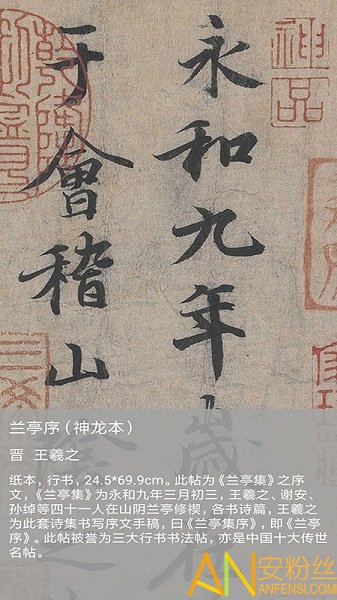 神品
永和九年歲
于會稽山陰
兰亭序（神龙本）
晋 王羲之
纸本，行书，24.5*69.9cm。此帖为《兰亭集》之序
文，《兰亭集》为永和九年三月初三，王羲之、谢安、
孙绰等四十一人在山阴兰亭修禊，各书诗篇，王羲之
为此套诗集书写序文手稿，曰《兰亭集序》，即《兰亭
序》。此帖被誉为三大行书书法帖，亦是中国十大传世
名帖。
AN安粉丝
ANFENSI.COM